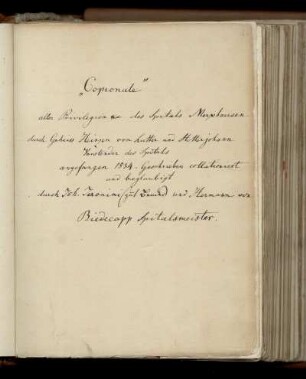 „Copionale“
aller Privilegien des Spitals Merxhausen
durch Gabriel Hissen von Lutter und
Vorsteher des Spitals
angefangen 1534. Geschrieben collationirt
und beglaubigt
durch Joh. und Herman von
Biedecapp Spitalsmeister.